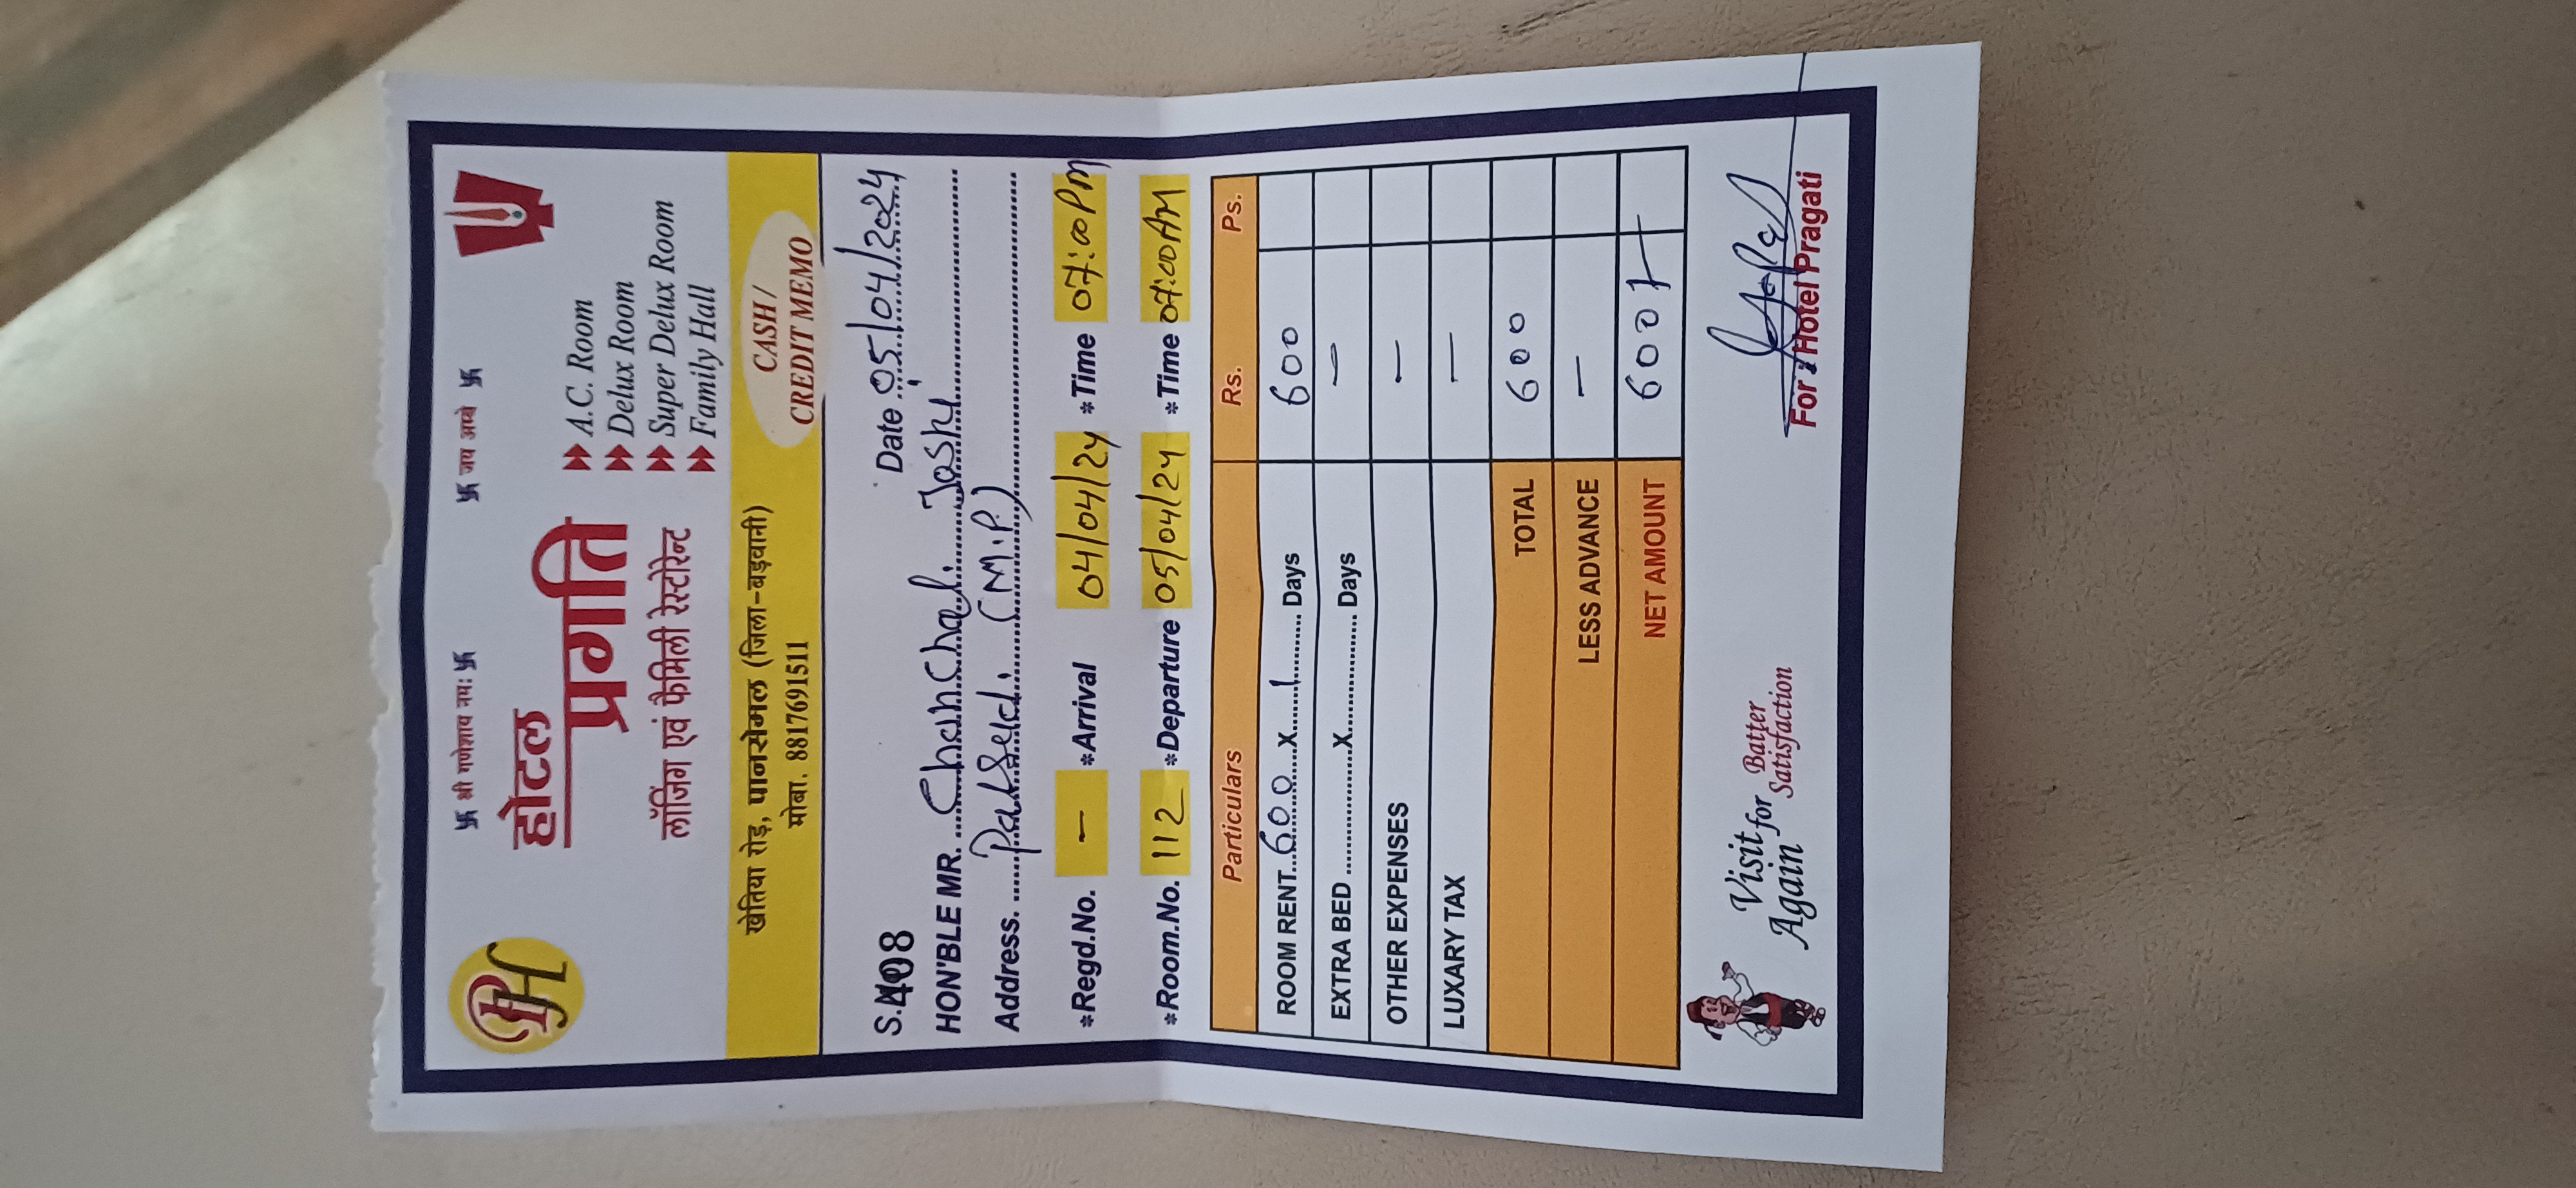 卐 श्री गणेशाय नमः 卐 卐 जय अम्बे 卐
PH
होटल
प्रगति
लॉजिंग एवं फैमिली रेस्टोरेन्ट
A.C. Room
Delux Room
Super Delux Room
Family Hall
खेतिया रोड़, पानसेमल (जिला-बड़वानी)
मोबा. 8817691511
CASH /
CREDIT MEMO
S. 408 Date 05/04/2024
HON'BLE MR. Chanchal Joshi
Address. (M.P.)
*Regd.No. — *Arrival 04/04/24 *Time 07:00 PM
*Room.No. 112 *Departure 05/04/24 *Time 07:00 AM
Particulars Rs. Ps.
ROOM RENT 600 x 1 Days 600
EXTRA BED x Days —
OTHER EXPENSES —
LUXARY TAX —
TOTAL 600
LESS ADVANCE —
NET AMOUNT 600/-
Visit for Batter
Again Satisfaction
For : Hotel Pragati